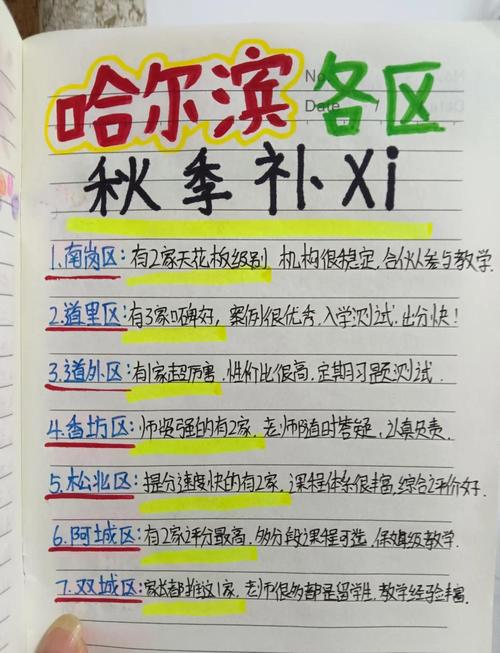 哈尔滨 各区
No.
Date /
秋季补Xi
1.南岗区:有2家天花板级别 机构很稳定,合伙人参与教学.
2.道里区:有3家口碑好,案例很优秀,入学测试,出分快!
3.道外区:有1家超厉害,性价比很高,定期习题测试.
4.香坊区:师资强的有2家,老师随时答疑,认真负责.
5.松北区:提分速度快的有2家,课程体系很丰富,综合评价好.
6.阿城区:有2家评分最高,多分段课程可选,保姆级教学.
7.双城区:家长都推这1家,老师很多都是留学生,教学经验丰富.